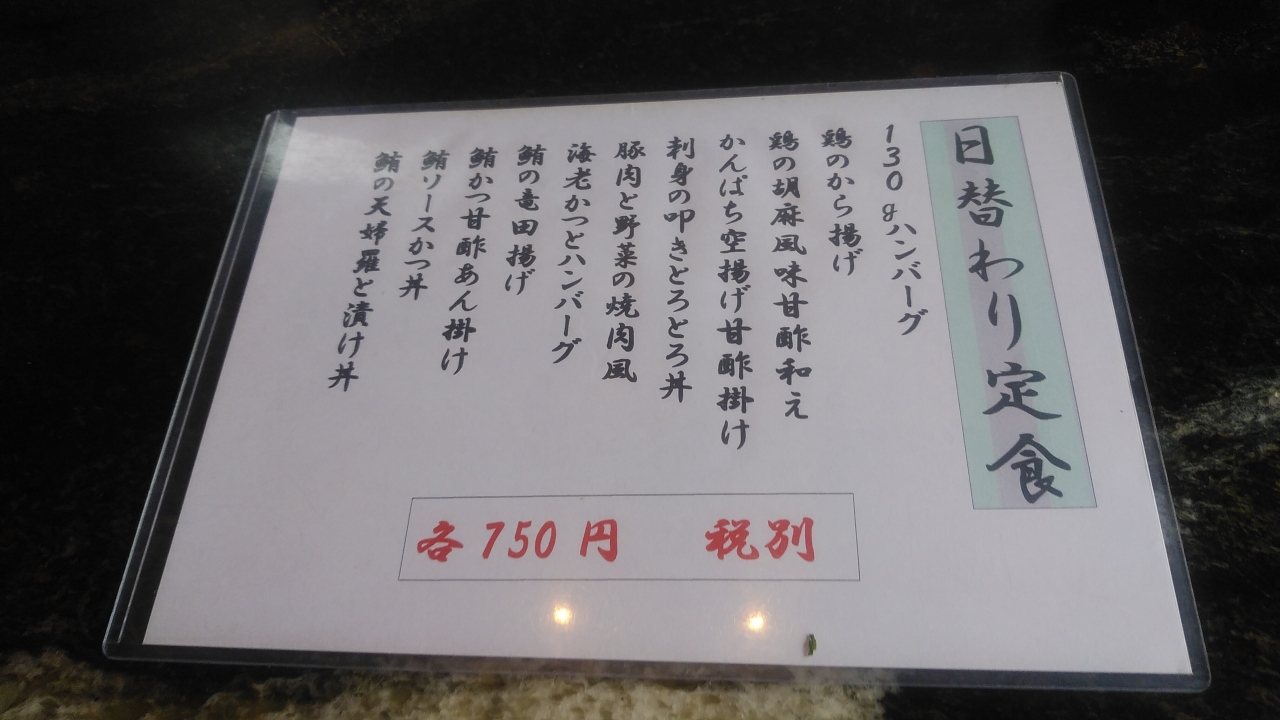 日替わり定食
130gハンバーグ
鶏のから揚げ
鶏の胡麻風味甘酢和え
かんぱち空揚げ甘酢掛け
刺身の叩きとろとろ丼
豚肉と野菜の焼肉風
海老かつとハンバーグ
鮪の竜田揚げ
鮪かつ甘酢あん掛け
鮪ソースかつ丼
鮪の天婦羅と漬け丼
各750円　税別